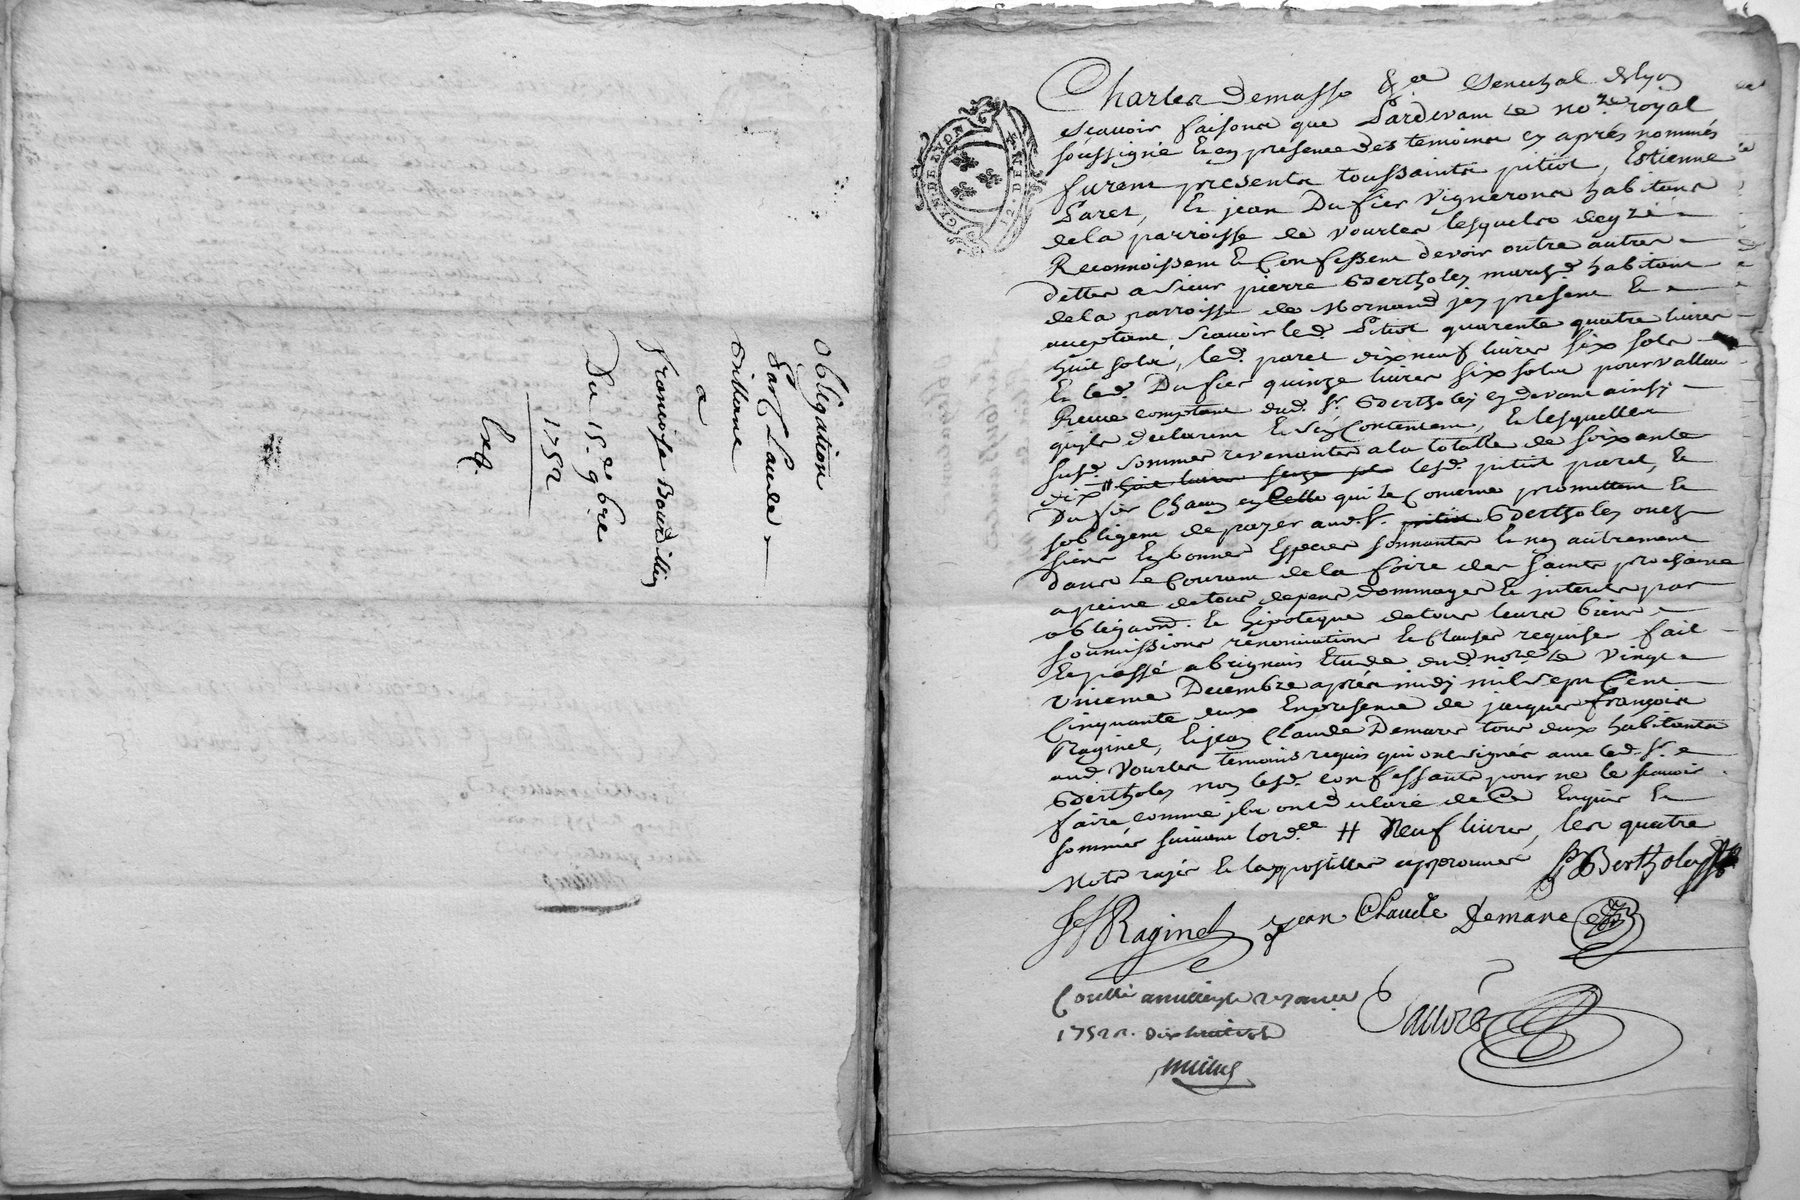 Obligation
Par Claude
Villerne
a
francoise Bourdillin
Du 15.e 9bre
1752
Exp.
GEN. DE LYON
Charles Demasso &ca Senechal de lyon
Scavoir faisons que Pardevant le no.re royal
soussigné et en presence des temoins cy après nommés
furent presents toussaints pitiot, Estienne
Paret, et jean Dufier vignerons habitans
de la parroisse de vourles lesquels de gré
Reconnoissent et Confessent devoir outre autres
dettes a sieur pierre Bertholey march.d habitant
de la parroisse de Mornand jcy present et
acceptant, scavoir led. Pitiot quarente quatre livres
huit sols, led. paret dix neuf livres six sols
Et led. Dufier quinze livres six sols pour valleur
Receue comptant dud. Sr. Bertholey cy devant ainsy
quils declarent et s'en Contentent, et lesquelles
susd. sommes revenantes a la totalle de soixante
dix # huit livres seize sols lesd. pitiot paret, et
Dufier Chacun en Celle qui le Concerne promettent et
sobligent de payer aud. Sr. pitiot Bertholey ou es
siens en bonnes Especes sonnantes et non autrement
dans le Courant de la foire des saints prochaine
a peine de tous depens dommages et interets par
obligaon. et hipoteque de tous leurs biens
soumissions renonciations et Clauses requises fait
et passé a brignais Etude dud. no.re le vingt
unieme Decembre après midy mil sept Cent
Cinquante deux En presence de jacques françois
Raginel, et jean Claude Demare tous deux habitants
aud. Vourles temoins requis qui ont signés avec led. Sr.
Bertholey non lesd. confessants pour ne le scavoir
faire comme jls ont declaré de Ce Enquis et
sommés suivant lord.ce # Neuf livres, les quatre
Mots rayés et lappostille approuvés P Bertholey
JF Raginel jean Claude Demare
Conllé a millery le
1752 R. dix huit sols